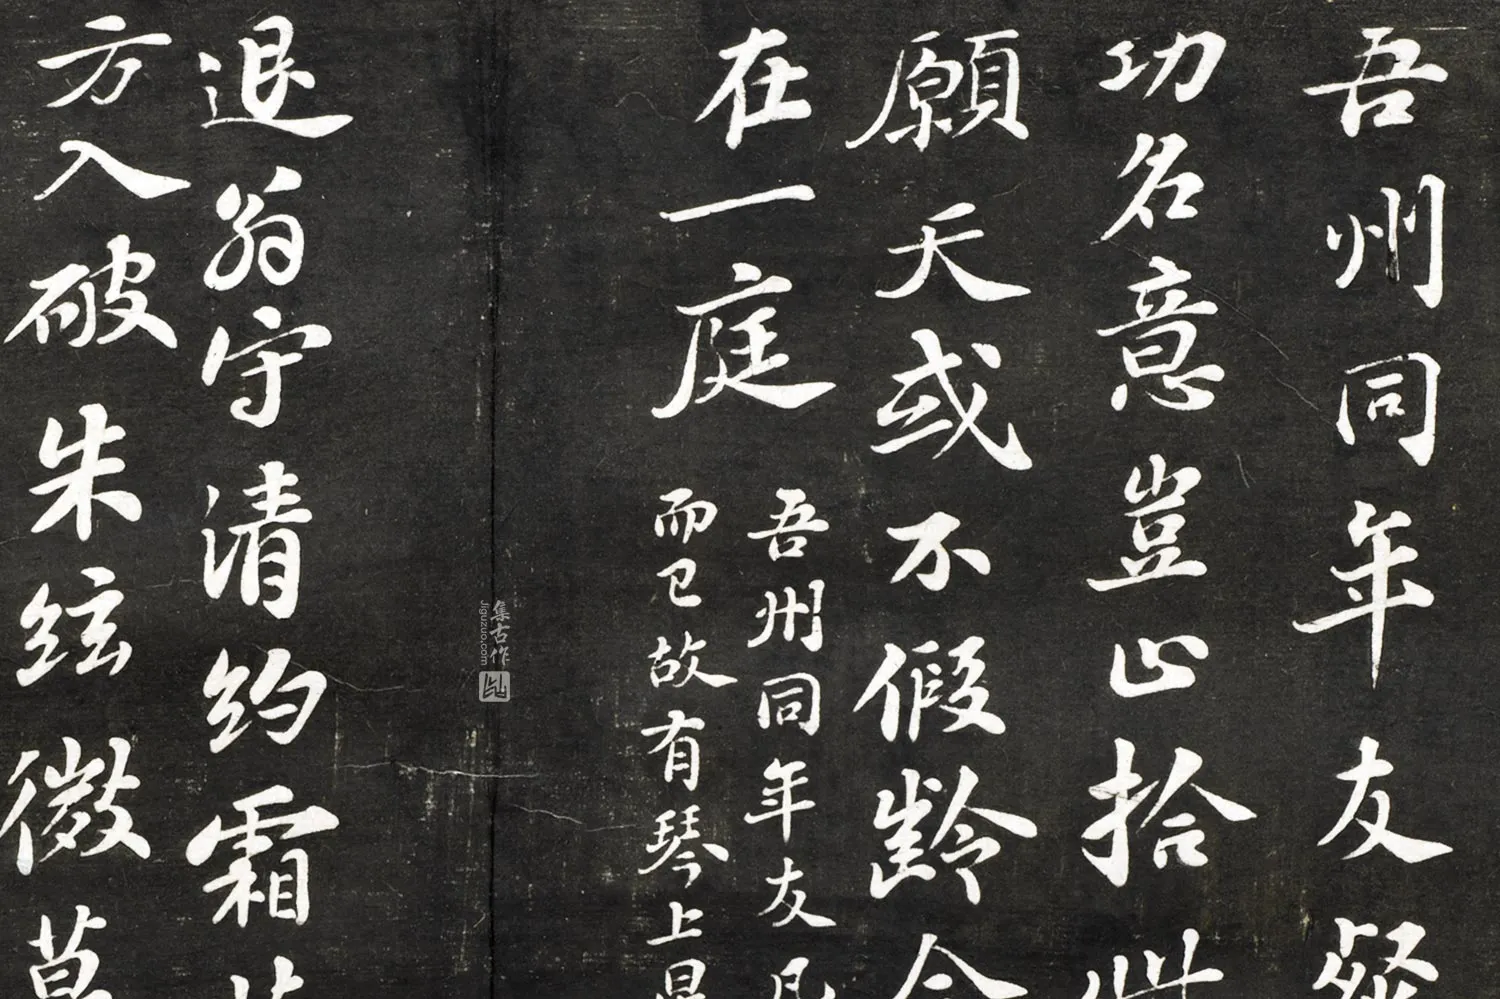 吾州同年友發
功名意豈止拾
願天或不假齡
在一庭
吾州同年友凡
而已故有琴上
退翁守清約霜
方入破朱絃微莫
集古作
Jiguzuo.com